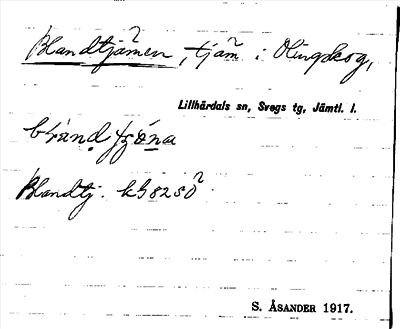 Blandtjärnen, tjärn i Olingskog,
Lillhärdals sn, Svegs tg, Jämtl. l.
Blandtj.
S. ÅSANDER 1917.